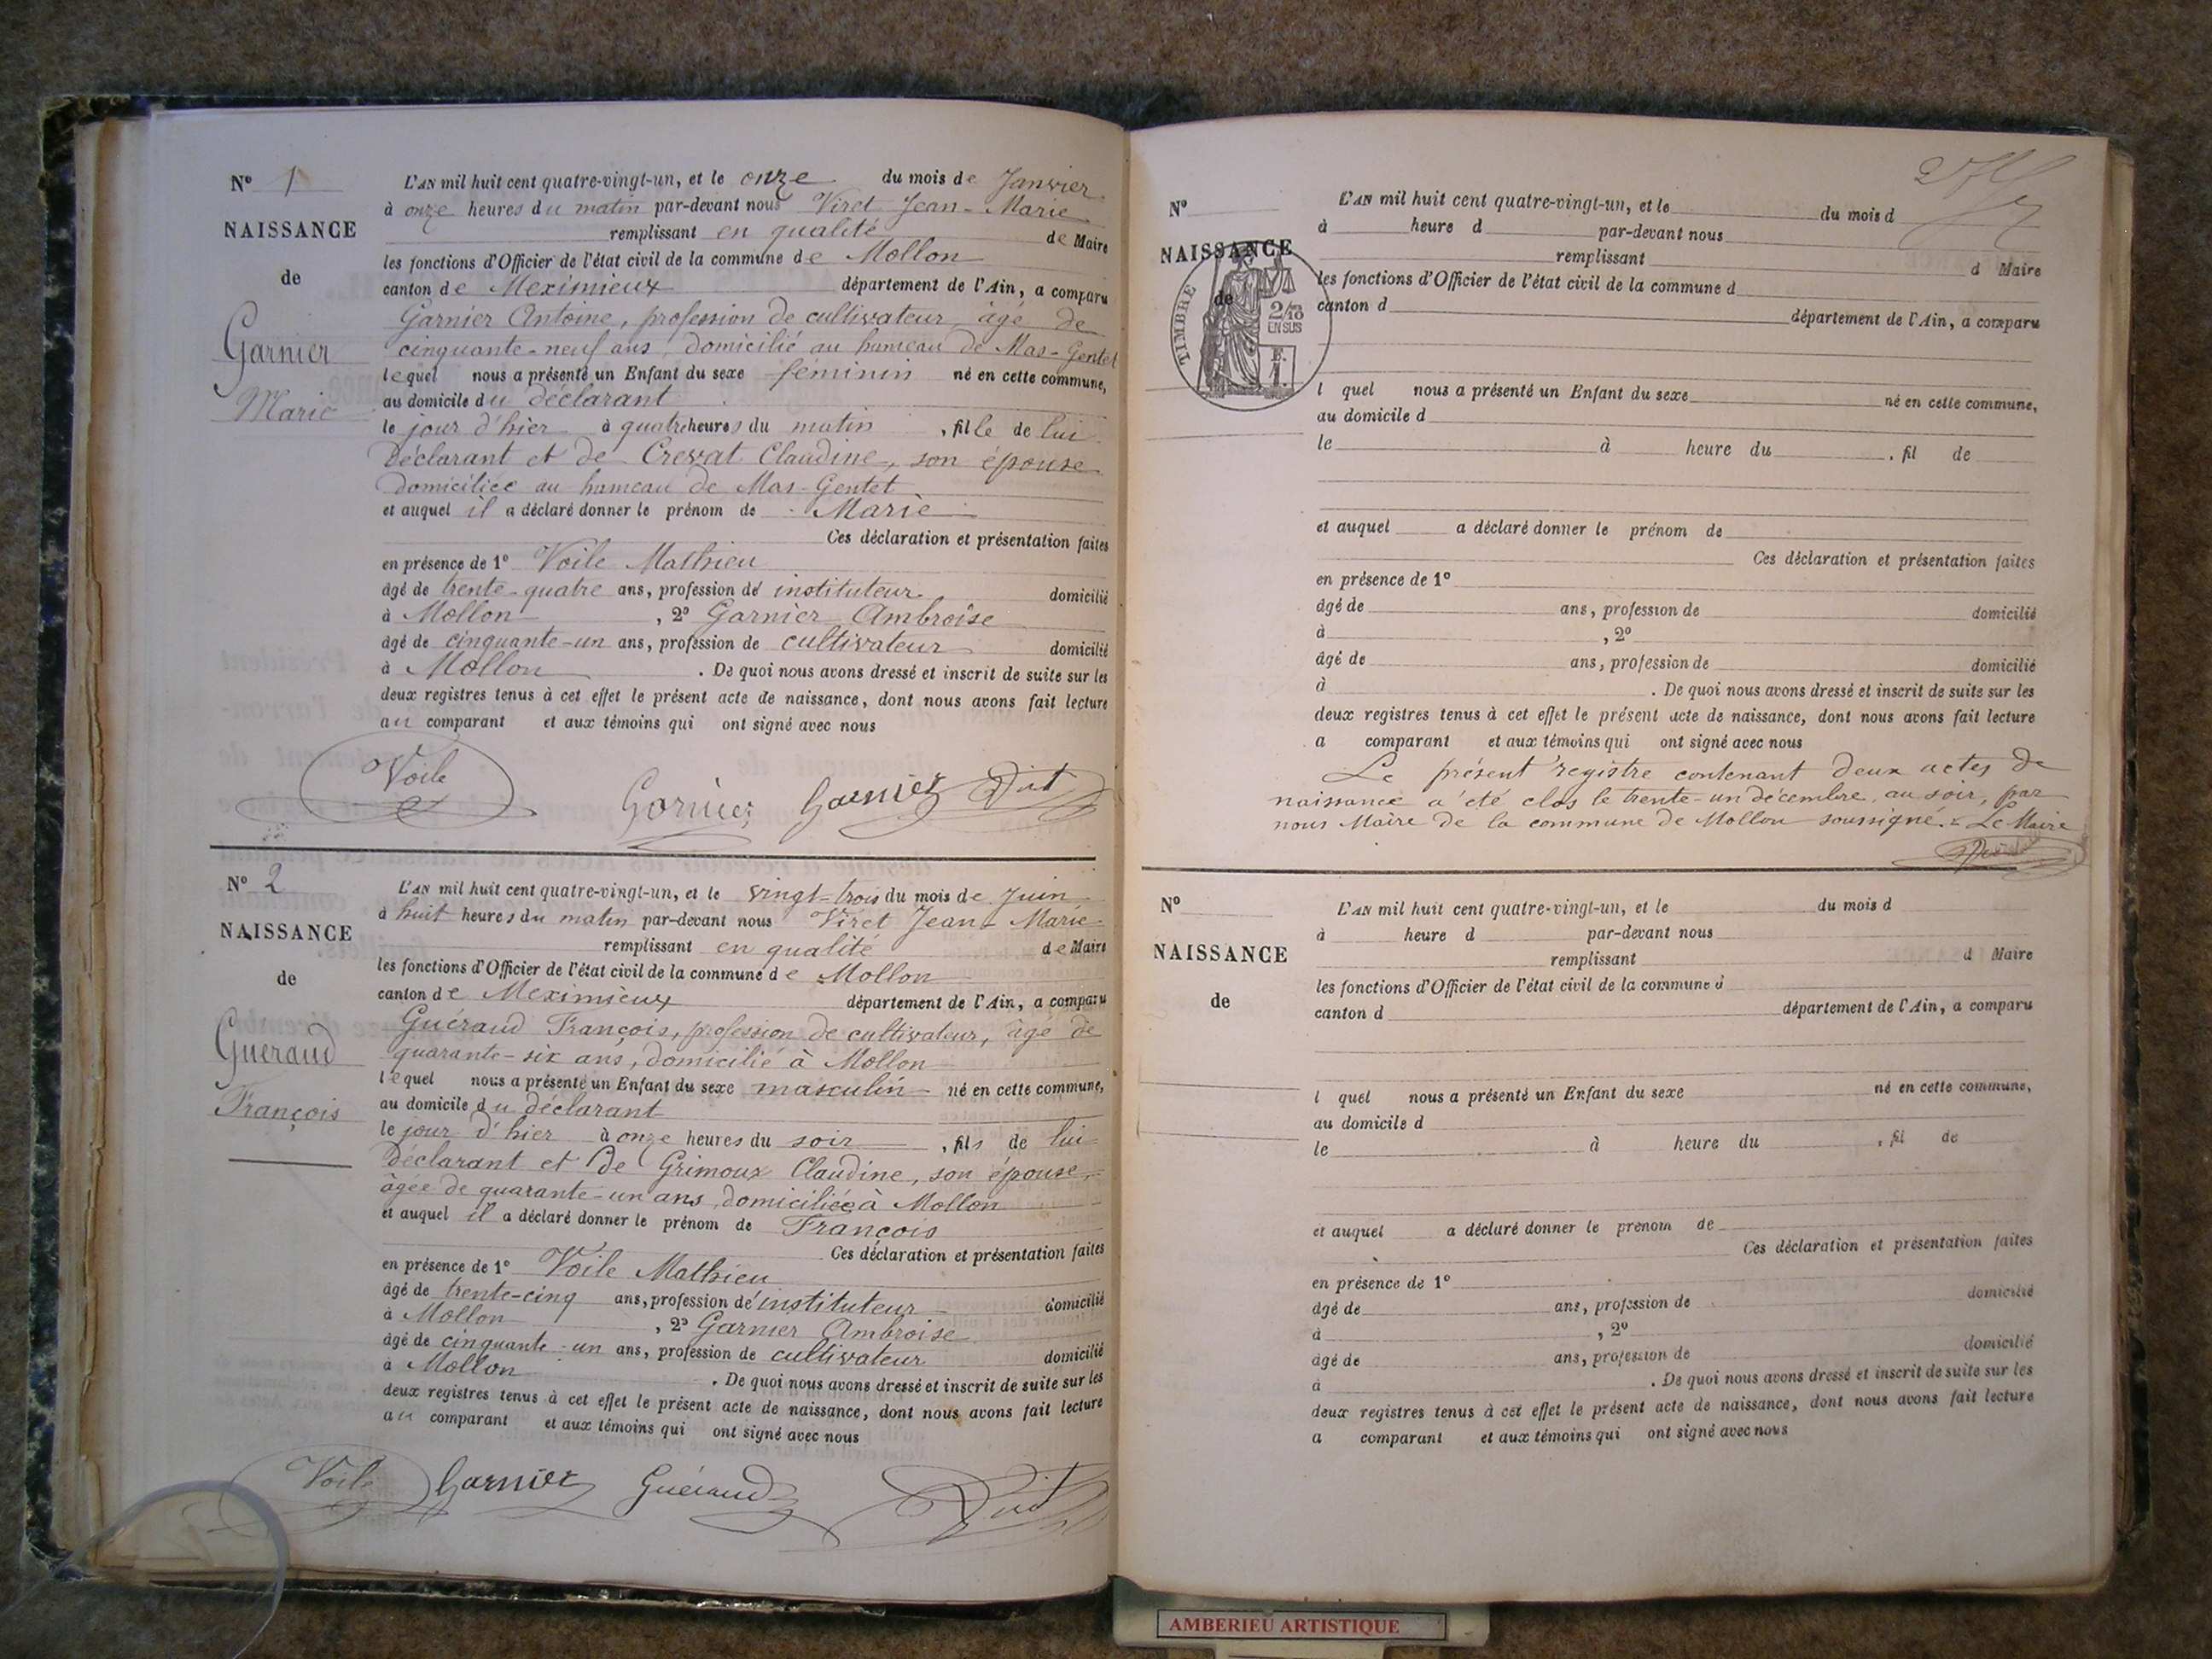 N° 1
NAISSANCE
de
Garnier
Marie
L'AN mil huit cent quatre-vingt-un, et le onze du mois de Janvier
à onze heures du matin par-devant nous Viret Jean-Marie
remplissant en qualité de Maire
les fonctions d'Officier de l'état civil de la commune de Mollon
canton de Meximieux département de l'Ain, a comparu
Garnier Antoine, profession de cultivateur âgé de
cinquante-neuf ans, domicilié au hameau de Mas-Gentet
lequel nous a présenté un Enfant du sexe feminin né en cette commune,
au domicile du déclarant
le jour d'hier à quatre heures du matin, fille de lui
déclarant et de Crevat Claudine, son épouse
domiciliée au hameau de Mas-Gentet
et auquel il a déclaré donner le prénom de Marie
Ces déclaration et présentation faites
en présence de 1° Voile Mathieu
âgé de trente-quatre ans, profession de instituteur domicilié
à Mollon, 2° Garnier Ambroise
âgé de cinquante-un ans, profession de cultivateur domicilié
à Mollon. De quoi nous avons dressé et inscrit de suite sur les
deux registres tenus à cet effet le présent acte de naissance, dont nous avons fait lecture
au comparant et aux témoins qui ont signé avec nous
Voile Garnier Garnier Viret
N° 2
NAISSANCE
de
Gueraud
François
L'AN mil huit cent quatre-vingt-un, et le vingt-trois du mois de Juin
à huit heures du matin par-devant nous Viret Jean-Marie
remplissant en qualité de Maire
les fonctions d'Officier de l'état civil de la commune de Mollon
canton de Meximieux département de l'Ain, a comparu
Guéraud François, profession de cultivateur, âgé de
quarante-six ans, domicilié à Mollon
lequel nous a présenté un Enfant du sexe masculin né en cette commune,
au domicile du déclarant
le jour d'hier à onze heures du soir, fils de lui
déclarant et de Grimoux Claudine, son épouse,
âgée de quarante-un ans, domiciliée à Mollon
et auquel il a déclaré donner le prénom de François
Ces déclaration et présentation faites
en présence de 1° Voile Mathieu
âgé de trente-cinq ans, profession de instituteur domicilié
à Mollon, 2° Garnier Ambroise
âgé de cinquante-un ans, profession de cultivateur domicilié
à Mollon. De quoi nous avons dressé et inscrit de suite sur les
deux registres tenus à cet effet le présent acte de naissance, dont nous avons fait lecture
au comparant et aux témoins qui ont signé avec nous
Voile Garnier Guéraud Viret
N°
NAISSANCE
de
TIMBRE
2/10
EN SUS
F.
1.
L'AN mil huit cent quatre-vingt-un, et le du mois d
à heure d par-devant nous
remplissant d Maire
les fonctions d'Officier de l'état civil de la commune d
canton d département de l'Ain, a comparu
l quel nous a présenté un Enfant du sexe né en cette commune,
au domicile d
le à heure du , fil de
et auquel a déclaré donner le prénom de
Ces déclaration et présentation faites
en présence de 1°
âgé de ans, profession de domicilié
à , 2°
âgé de ans, profession de domicilié
à . De quoi nous avons dressé et inscrit de suite sur les
deux registres tenus à cet effet le présent acte de naissance, dont nous avons fait lecture
a comparant et aux témoins qui ont signé avec nous
Le présent registre contenant deux actes de
naissance a été clos le trente-un décembre, au soir, par
nous Maire de la commune de Mollon soussigné. Le Maire
N°
NAISSANCE
de
L'AN mil huit cent quatre-vingt-un, et le du mois d
à heure d par-devant nous
remplissant d Maire
les fonctions d'Officier de l'état civil de la commune d
canton d département de l'Ain, a comparu
l quel nous a présenté un Enfant du sexe né en cette commune,
au domicile d
le à heure du , fil de
et auquel a déclaré donner le prenom de
Ces déclaration et présentation faites
en présence de 1°
âgé de ans, profession de domicilié
à , 2°
âgé de ans, profession de domicilié
à . De quoi nous avons dressé et inscrit de suite sur les
deux registres tenus à cet effet le présent acte de naissance, dont nous avons fait lecture
a comparant et aux témoins qui ont signé avec nous
AMBERIEU ARTISTIQUE